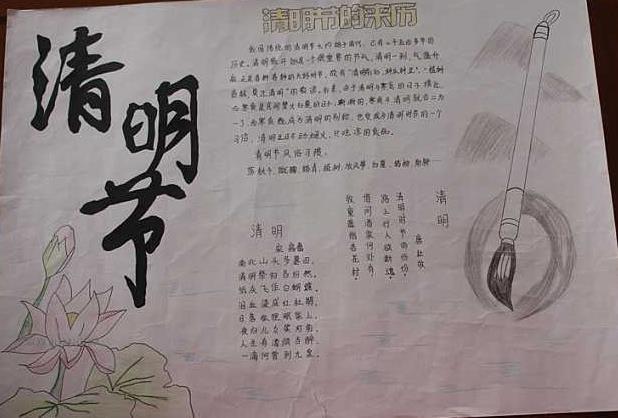 清明节
清明节的来历
我国传统的清明节大约始于周代，已有二千五百多年的
历史。清明最开始是一个很重要的节气，清明一到，气温升
高，正是春耕春种的大好时节，故有“清明前后，种瓜种豆”。“植树
造林，莫过清明”的农谚。后来，由于清明与寒食的日子接近，
而寒食是民间禁火扫墓的日子，渐渐的，寒食与清明就合二为
一了，而寒食既成为清明的别称，也变成为清明时节的一个
习俗，清明之日不动烟火，只吃凉的食品。
清明节风俗习惯：
荡秋千、蹴鞠、踏青、植树、放风筝、扫墓、插柳、射柳……
清明
宋 高翥
南北山头多墓田，
清明祭扫各纷然。
纸灰飞作白蝴蝶，
泪血染成红杜鹃。
日落狐狸眠冢上，
夜归儿女笑灯前。
人生有酒须当醉，
一滴何曾到九泉。
清明
唐 杜牧
清明时节雨纷纷，
路上行人欲断魂。
借问酒家何处有，
牧童遥指杏花村。